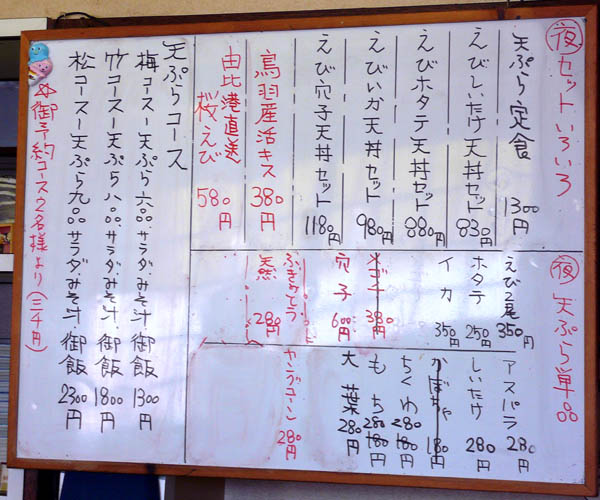 夜セットいろいろ
天ぷら定食 1300円
えびしいたけ天丼セット 830円
えびホタテ天丼セット 880円
えびいか天丼セット 980円
えび穴子天丼セット 1180円
鳥羽産活キス 380円
由比港直送桜えび 580円
夜天ぷら単品
えび2尾 350円
ホタテ 250円
イカ 350円
メゴチ 380円
穴子 600円
天然ふきのとう 280円
アスパラ 280円
しいたけ 280円
かぼちゃ 180円
ちくわ 280 180円
もち 280 180円
大葉 280円
ヤングコーン 280円
天ぷらコース
梅コース―天ぷら六品.サラダ.みそ汁.御飯 1300円
竹コース―天ぷら八品.サラダ.みそ汁.御飯 1800円
松コース―天ぷら九品.サラダみそ汁.御飯 2300円
☆御予約コース2名様より(三千円)